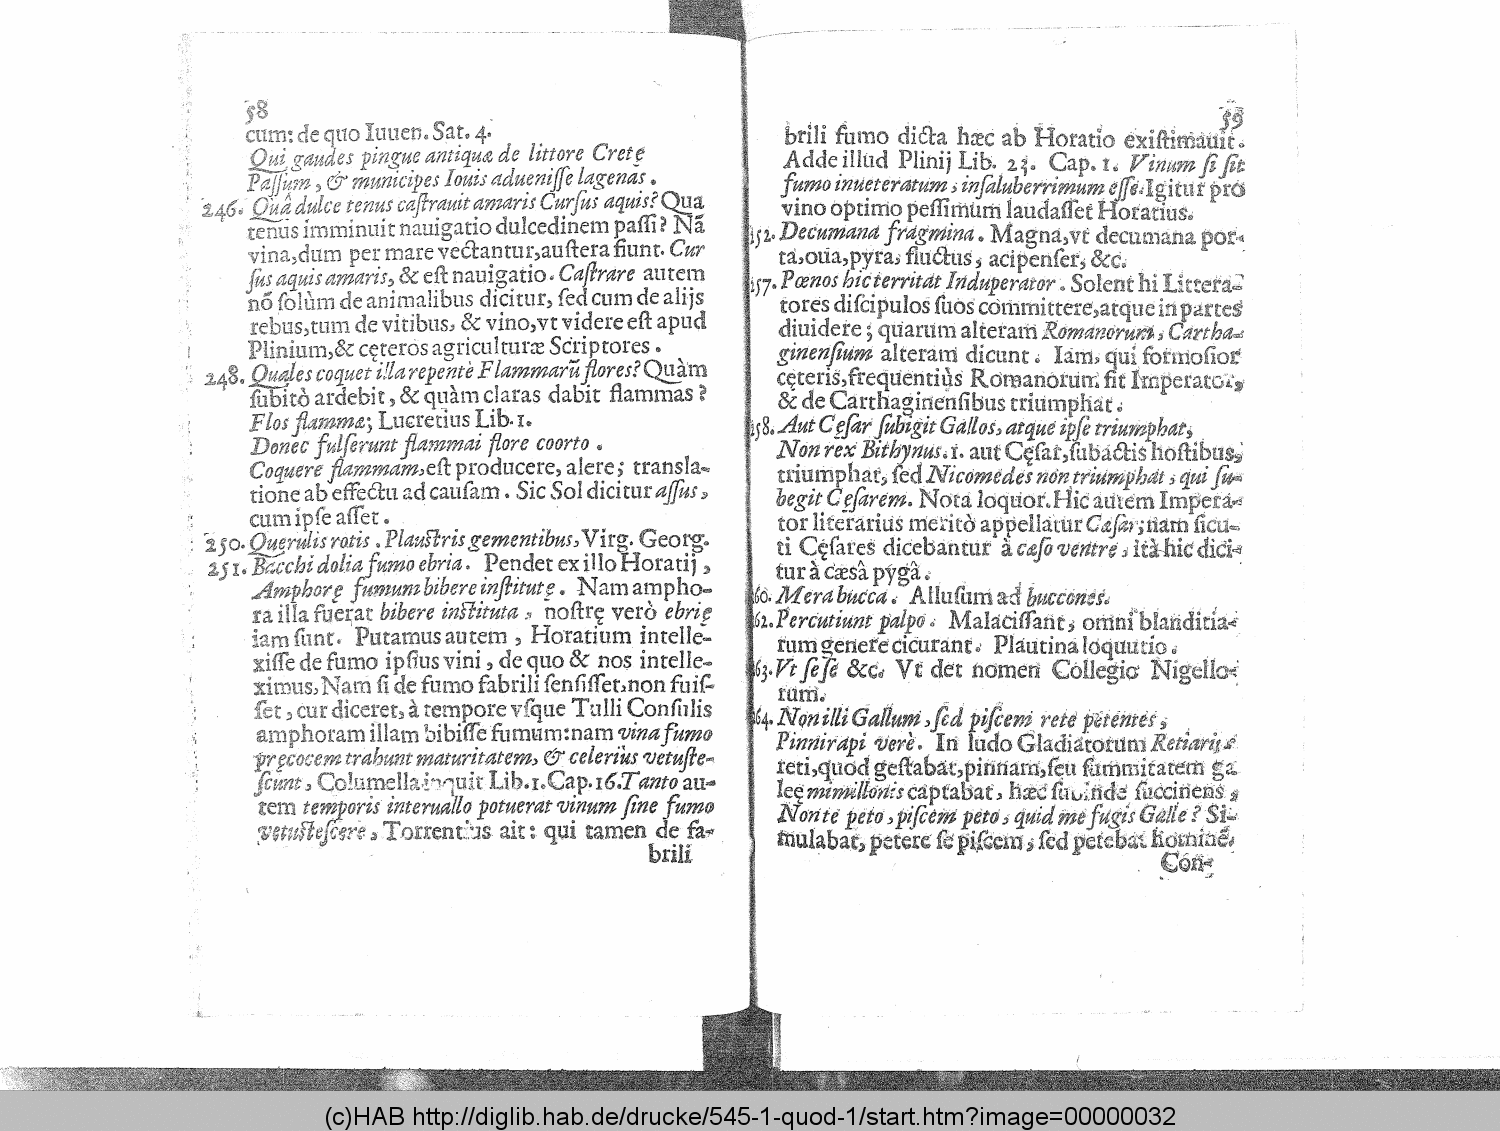 58
cum: de quo Iuuen. Sat. 4.
Qui gaudes pingue antiquæ de littore Cretę
Paſſum, & municipes Iouis adueniſſe lagenas.
246. Quâ dulce tenus caſtrauit amaris Curſus aquis? Qua
tenus imminuit nauigatio dulcedinem paſſi? Nã
vina, dum per mare vectantur, auſtera fiunt. Cur
ſus aquis amaris, & eſt nauigatio. Caſtrare autem
nō ſolùm de animalibus dicitur, ſed cum de alijs
rebus, tum de vitibus, & vino, vt videre eſt apud
Plinium, & cęteros agriculturæ Scriptores.
248. Quales coquet illa repentè Flammarũ flores? Quàm
ſubitò ardebit, & quàm claras dabit flammas?
Flos flammæ; Lucretius Lib. 1.
Donec fulſerunt flammai flore coorto.
Coquere flammam, eſt producere, alere; transla-
tione ab effectu ad cauſam. Sic Sol dicitur aſſus,
cum ipſe aſſet.
250. Querulis rotis. Plauſtris gementibus, Virg. Georg.
251. Bacchi dolia fumo ebria. Pendet ex illo Horatij,
Amphorę fumum bibere inſtitutę. Nam ampho-
ra illa fuerat bibere inſtituta, noſtrę verò ebrię
iam ſunt. Putamus autem, Horatium intelle-
xiſſe de fumo ipſius vini, de quo & nos intelle-
ximus, Nam ſi de fumo fabrili ſenſiſſet, non fuiſ-
ſet, cur diceret, à tempore vſque Tulli Conſulis
amphoram illam bibiſſe fumum: nam vina fumo
pręcocem trahunt maturitatem, & celeriùs vetuſte-
ſcunt, Columella inquit Lib. 1. Cap. 16. Tanto au-
tem temporis interuallo potuerat vinum ſine fumo
vetuſteſcere, Torrentius ait: qui tamen de fa-
brili
59
brili fumo dicta hæc ab Horatio exiſtimauit.
Adde illud Plinij Lib. 23. Cap. 1. Vinum ſi ſit
fumo inueteratum, inſaluberrimum eſſe. Igitur pro
vino optimo peſſimum laudaſſet Horatius.
152. Decumana fragmina. Magna, vt decumana por-
ta, oua, pyra, fluctus, acipenſer, &c.
157. Pœnos hic territat Induperator. Solent hi Littera-
tores diſcipulos ſuos committere, atque in partes
diuidere; quarum alteram Romanorum, Cartha-
ginenſium alteram dicunt. Iam, qui formoſior
cęteris, frequentiùs Romanorum fit Imperator,
& de Carthaginenſibus triumphat.
158. Aut Cęſar ſubigit Gallos, atque ipſe triumphat,
Non rex Bithynus. i. aut Cęſar, ſubactis hoſtibus,
triumphat, ſed Nicomedes non triumphat, qui ſu-
begit Cęſarem. Nota loquor. Hic autem Impera-
tor literarius meritò appellatur Cæſar; nam ſicu-
ti Cęſares dicebantur à cæſo ventre, ità hic dici-
tur à cæsâ pygâ.
60. Mera bucca. Alluſum ad buccones.
62. Percutiunt palpo. Malaciſſant, omni blanditia-
rum genere cicurant. Plautina loquutio.
63. Vt ſeſe &c. Vt det nomen Collegio Nigello-
rum.
64. Non illi Gallum, ſed piſcem rete petentes,
Pinnirapi verè. In ludo Gladiatorum Retiarijs
reti, quod geſtabat, pinnam, ſeu ſummitatem ga
leę mimillonis captabat, hæc ſubinde ſuccinens,
Non te peto, piſcem peto, quid me fugis Galle? Si-
mulabat, petere ſe piſcem, ſed petebat hominē,
Con-
(c)HAB http://diglib.hab.de/drucke/545-1-quod-1/start.htm?image=00000032